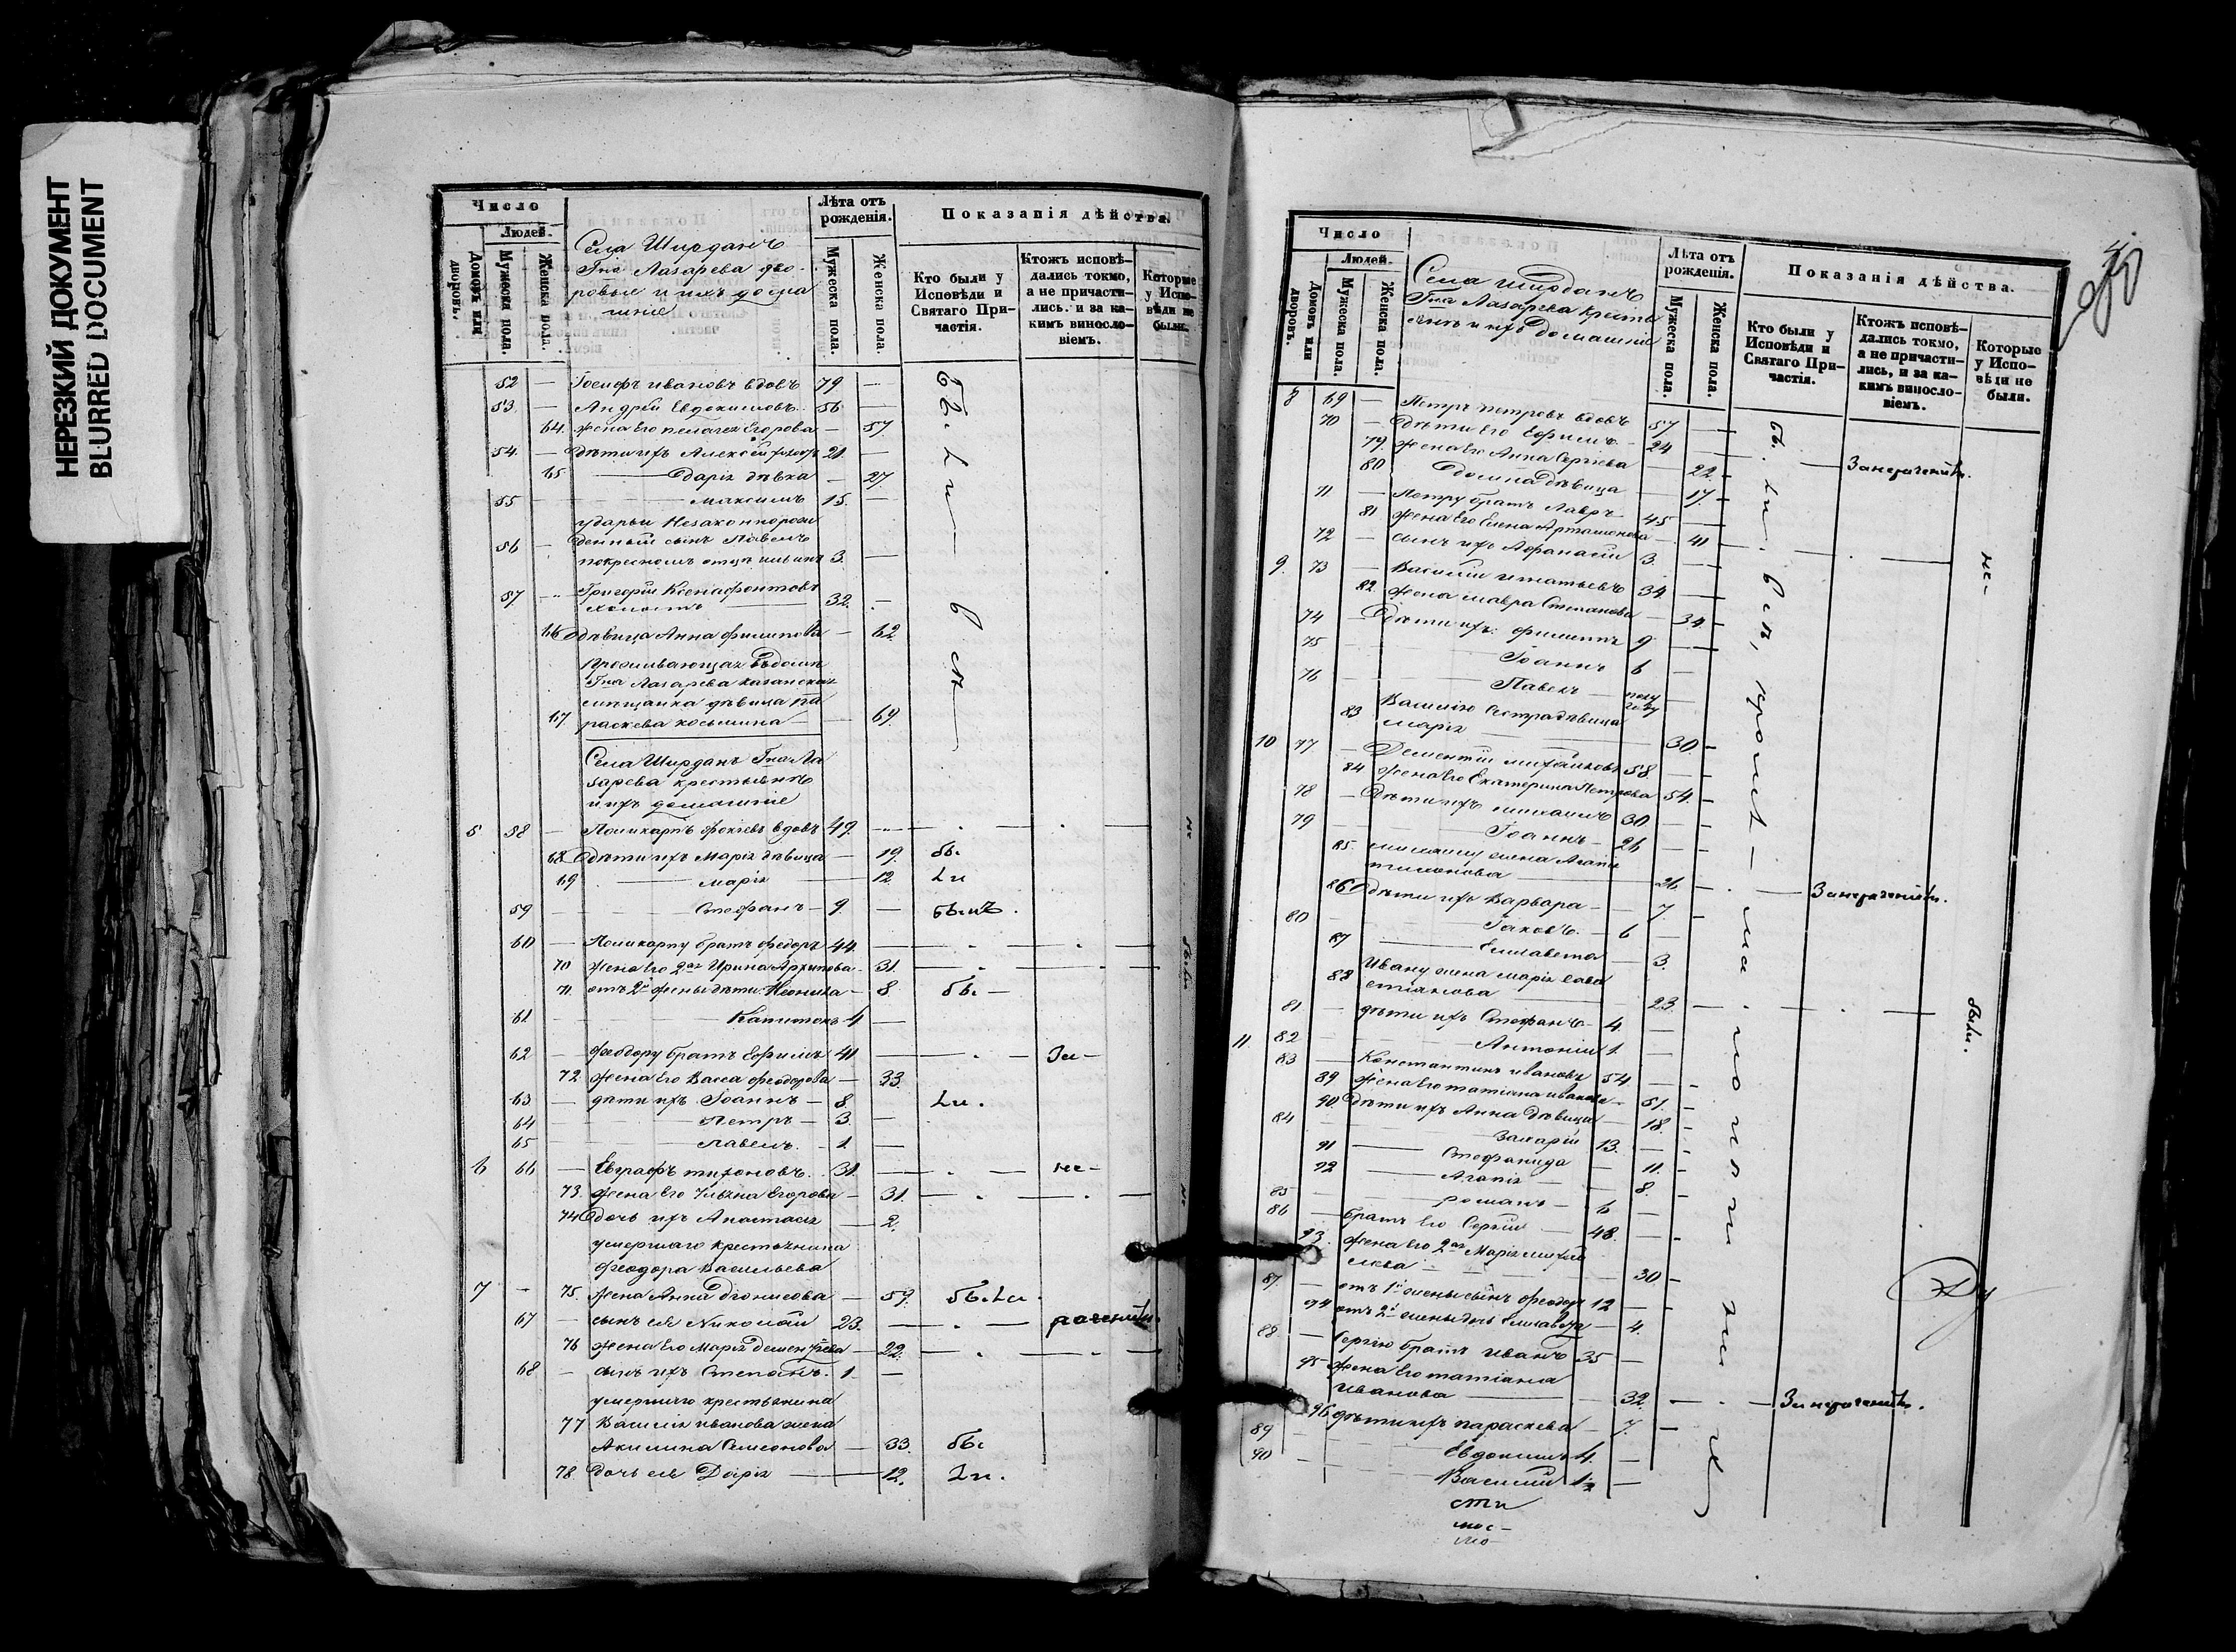 НЕРЕЗКИЙ ДОКУМЕНТ
BLURRED DOCUMENT
Число
Людей.
Домовъ или дворовъ.
Мужеска пола.
Женска пола.
Села Ширданъ
Гна Лазарева дво-
ровые и ихъ домаш
ніе
Лѣта отъ рожденія.
Мужеска пола.
Женска пола.
Показанія дѣйства.
Кто были у Исповѣди и Святаго При-частія.
Ктожъ исповѣ-дались токмо, а не причасти-лись. и за ка-кимъ виносло-віемъ.
Которые у Испо-вѣди не были.
52 — Іосифъ Ивановъ вдовъ 79 —
53. — Андрей Евдокимовъ 56 —
64. жена Его Пелагея Егорова — 57.
54. — дѣти ихъ Алексѣй 21. —
65 Дарія дѣвка — 27.
55 Максимъ 15. —
у Дарьи Незаконнорож
56 — денный сынъ Павелъ
3. —
57 — Григорій Ксенофонтовъ
холостъ 32. —
66 дѣвица Анна Филипова — 62
Проживающая въ домѣ
Гна Лазарева Казанская
мѣщанка дѣвица Па
67. раскева Косьмина — 69.
Бы-ли-всѣ
Села Ширданъ Гна Ла
зарева крестьянъ
и ихъ домашніе
5 58 — Поликарпъ Фокіевъ вдовъ 49. — . — . —
68 дѣти ихъ Марія дѣвица — 19. бы
69 Марія — 12. ли
59 Стефанъ — 9. — былъ.
60 — Поликарпу братъ Федоръ 44. — . — . —
70 жена Его 2ая Ирина Архипова — 31. — . — . —
71. отъ 2й жены дѣти: Неонила — 8. бы —
61 Капитонъ 4 —
62 — Феодору братъ Ефимъ 41. — . — За —
72 жена Его Васса Феодорова — 33.
63 — дѣти ихъ Іоаннъ — 8. ли.
64 Петръ — 3. —
65 Павелъ. — 1. —
6 66 — Евграфъ Тихоновъ. 31. — . — не —
73. жена Его Егорова — 31. — . — . —
74 дочь ихъ Анастасія — 2.
умершаго крестьянина
Феодора Васильева
7 — 75. жена Анна Діонисова — 59. были.
67 — сынъ ея Николай 23. — . — раченіемъ.
76 жена Его Марія Дементьева — 22. — . — . —
68 — сынъ ихъ Степанъ. 1. —
умершаго крестьянина
77 Василія Иванова жена
Акилина Симеонова — 33. бы
78. дочь ея Дарія — 12. ли.
Число
Людей.
Домовъ или дворовъ.
Мужеска пола.
Женска пола.
Села Ширданъ
Гна Лазарева кресть
янъ и ихъ домашніе
Лѣта отъ рожденія.
Мужеска пола.
Женска пола.
Показанія дѣйства.
Кто были у Исповѣди и Святаго При-частія.
Ктожъ исповѣ-дались токмо, а не причасти-лись, и за ка-кимъ виносло-віемъ.
Которые у Испо-вѣди не были.
8 69 — Петръ Петровъ вдовъ 57 —
70 — дѣти Его Ефимъ — 24 — Занераченіемъ.
79. жена Его Анна Сергіева — 22. —
80 Домна дѣвица — 17. —
71 — Петру братъ Лавръ 45 —
81 жена Его Елена Артамонова — 41 — . — . —
72 — сынъ ихъ Афанасій 3. —
9. 73 — Василій Игнатьевъ 34. —
82 жена Мавра Степанова — 34. —
74 — дѣти ихъ: Филиппъ 9 —
75 Іоаннъ 6 —
76 Павелъ — полу
году
83 Василію Сестра дѣвица
Марія — 30. —
10 77 — Дементій Михайловъ 58 —
84 жена Его Екатерина Петрова 54. —
78 — дѣти ихъ 30. —
79 Іоаннъ — 26 —
85. жена Агапи
26 — . — Занераченіемъ.
86 дѣти ихъ Варвара — 7. —
80 Іаковъ. — 6 —
87 Елисавета — 3.
88 Ивану жена Марія Савас
тіанова — 23. — . — . —
81 — дѣти ихъ Стефанъ 4. —
82 Антоній 1. —
11. 83 — Константинъ Ивановъ 54 —
89 жена Его Татіана Иванова — 51. —
90. дѣти ихъ Анна дѣвица — 18. —
84 Захарій 13. —
91 Стефанида — 11. —
92 Агапія — 8. —
85 Романъ — 6 —
86 — братъ Его Сергій — 48. —
93. жена Его 2ая Марія Михай
лова — 30. —
87. — отъ 1й жены сынъ Феодоръ 12 —
94 отъ 2й жены дочь Елисавета — 4.
88 — Сергію братъ Иванъ 35 —
95 жена Его Татіана
Иванова — 32. — . — Занераченіемъ.
96 дѣти ихъ Параскева — 7. —
89 Евдокимъ 4. —
90 Василій 1 —
сти
мос-
мо-
бы. ли. всѣ, кромѣ —
не —
были.